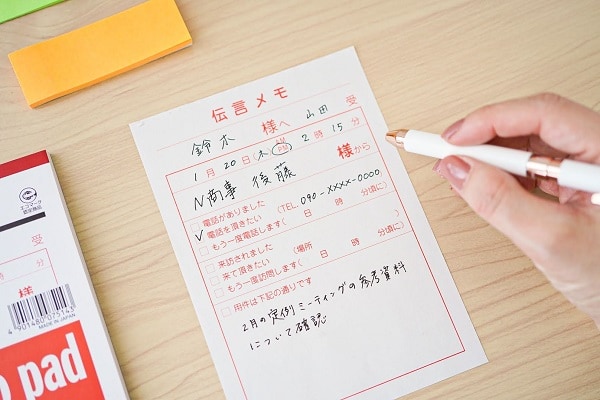 伝言メモ
鈴木 様へ 山田 受
1月20日(木) AM PM 2時15分
N商事 後藤 様から
電話がありました
✓ 電話を頂きたい (TEL 090-XXXX-0000)
もう一度電話します( 日 時 分頃に)
来訪されました
来て頂きたい (場所 )
もう一度訪問します( 日 時 分頃に)
用件は下記の通りです
2月の定例ミーティングの参考資料
について確認
受
分
様
4901480075143
MADE IN JAPAN
o pad